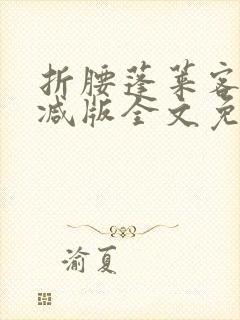 折腰蓬莱客
减版全文免
渝夏